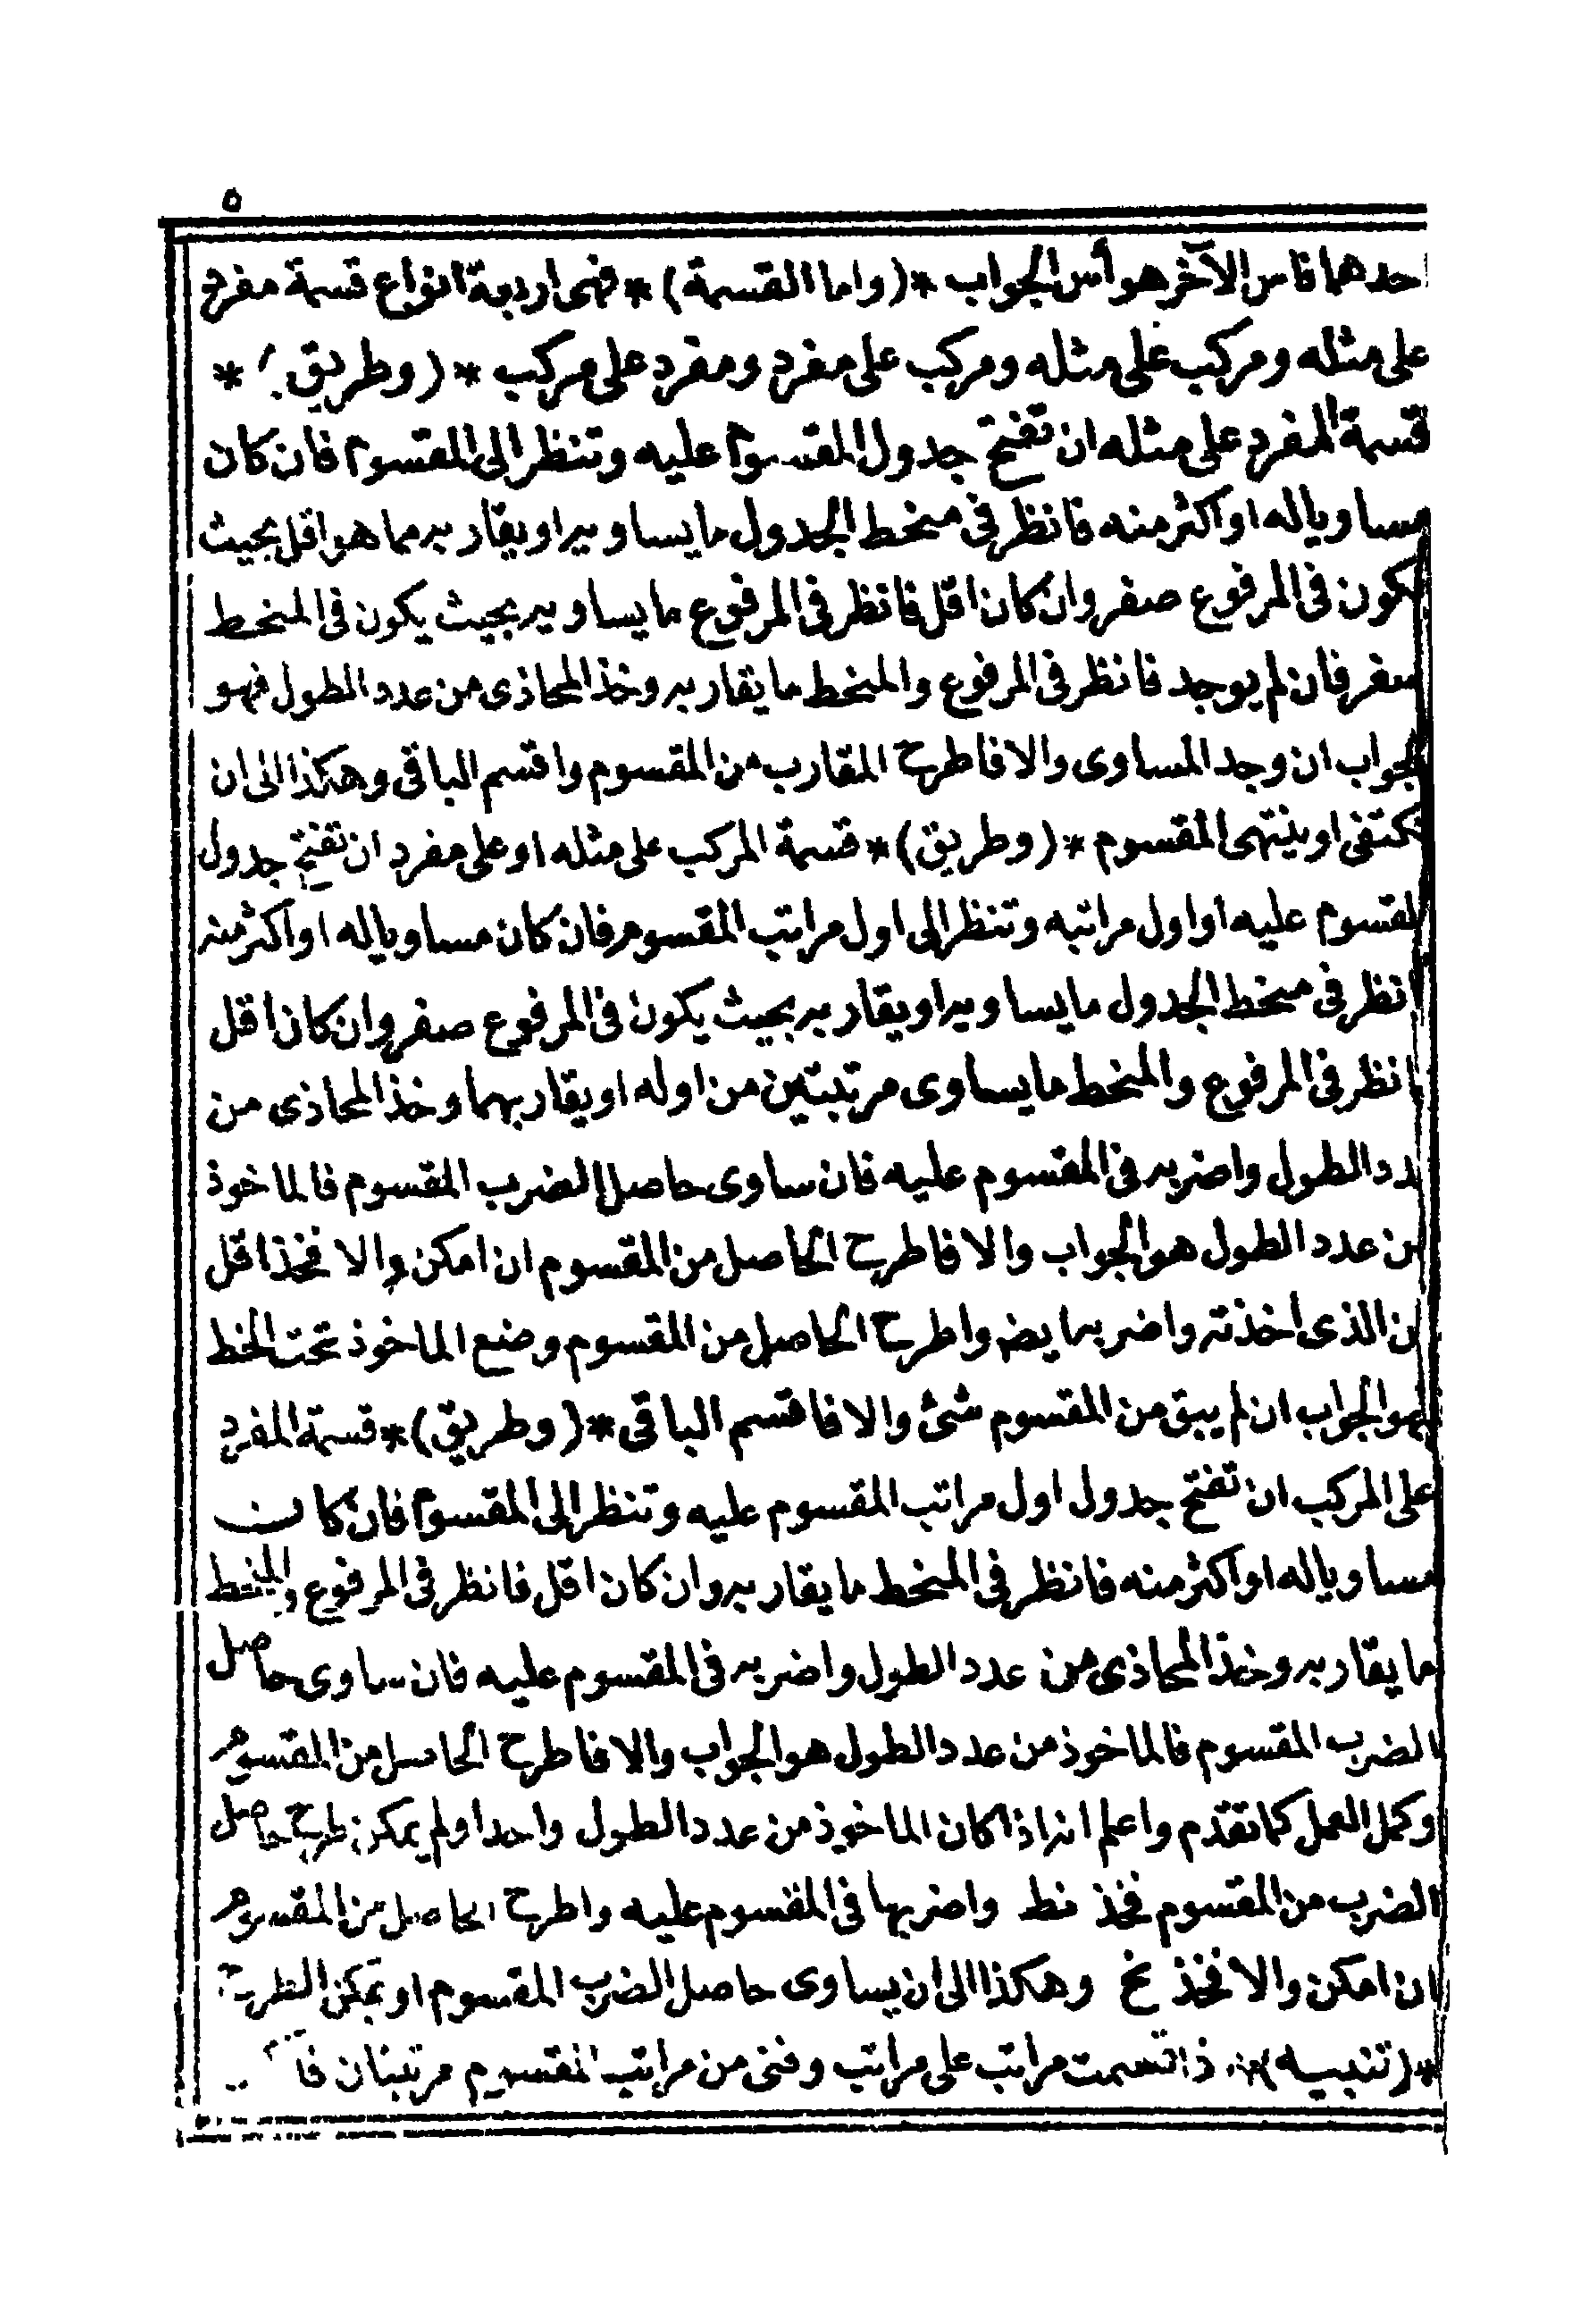 ٥
احدهما فاس الآخر هو أس الجواب *(واما القسمة)* فهى اربعة انواع قسمة مفرد
على مثله ومركب على مثله ومركب على مفرد ومفرد على مركب *(وطريق)*
قسمة المفرد على مثله ان تفتح جدول المقسوم عليه وتنظر الى المقسوم فان كان
مساويا له او اكثر منه فانظر فى منخط الجدول ما يساويه او يقاربه مما هو اقل بحيث
يكون فى المرفوع صفر وان كان اقل فانظر فى المرفوع ما يساويه بحيث يكون فى المنخط
صفر فان لم يوجد فانظر فى المرفوع والمنخط ما يقاربه وخذ المحاذى من عدد الطول فهو
الجواب ان وجد المساوى والا فاطرح المقارب من المقسوم واقسم الباقى وهكذا الى ان
تكتفى او ينتهى المقسوم *(وطريق)* قسمة المركب على مثله او على مفرد ان تفتح جدول
المقسوم عليه او اول مراتبه وتنظر الى اول مراتب المقسوم فان كان مساويا له او اكثر منه
فانظر فى منخط الجدول ما يساويه او يقاربه بحيث يكون فى المرفوع صفر وان كان اقل
فانظر فى المرفوع والمنخط ما يساوى مرتبتين من اوله او يقاربهما وخذ المحاذى من
عدد الطول واضربه فى المقسوم عليه فان ساوى حاصل الضرب المقسوم فالماخوذ
من عدد الطول هو الجواب والا فاطرح الحاصل من المقسوم ان امكن والا فخذ اقل
من الذى اخذته واضربه ايضه واطرح الحاصل من المقسوم وضع الماخوذ تحت الخط
فهو الجواب ان لم يبق من المقسوم شئ والا فاقسم الباقى *(وطريق)* قسمة المفرد
على المركب ان تفتح جدول اول مراتب المقسوم عليه وتنظر الى المقسوم فان كان
مساويا له او اكثر منه فانظر فى المنخط ما يقاربه وان كان اقل فانظر فى المرفوع والمنخط
ما يقاربه وخذ المحاذى من عدد الطول واضربه فى المقسوم عليه فان ساوى حاصل
الضرب المقسوم فالماخوذ من عدد الطول هو الجواب والا فاطرح الحاصل من المقسوم
وكمل العمل كما تقدم واعلم انه اذا كان الماخوذ من عدد الطول واحدا ولم يمكن طرح حاصل
الضرب من المقسوم فخذ نط واضربها فى المقسوم عليه واطرح الحاصل من المقسوم
ان امكن والا فخذ نح وهكذا الى ان يساوى حاصل الضرب المقسوم او يمكن الطرح
*(تنبيه)* اذا قسمت مراتب على مراتب وفنى من مراتب المقسوم مرتبتان